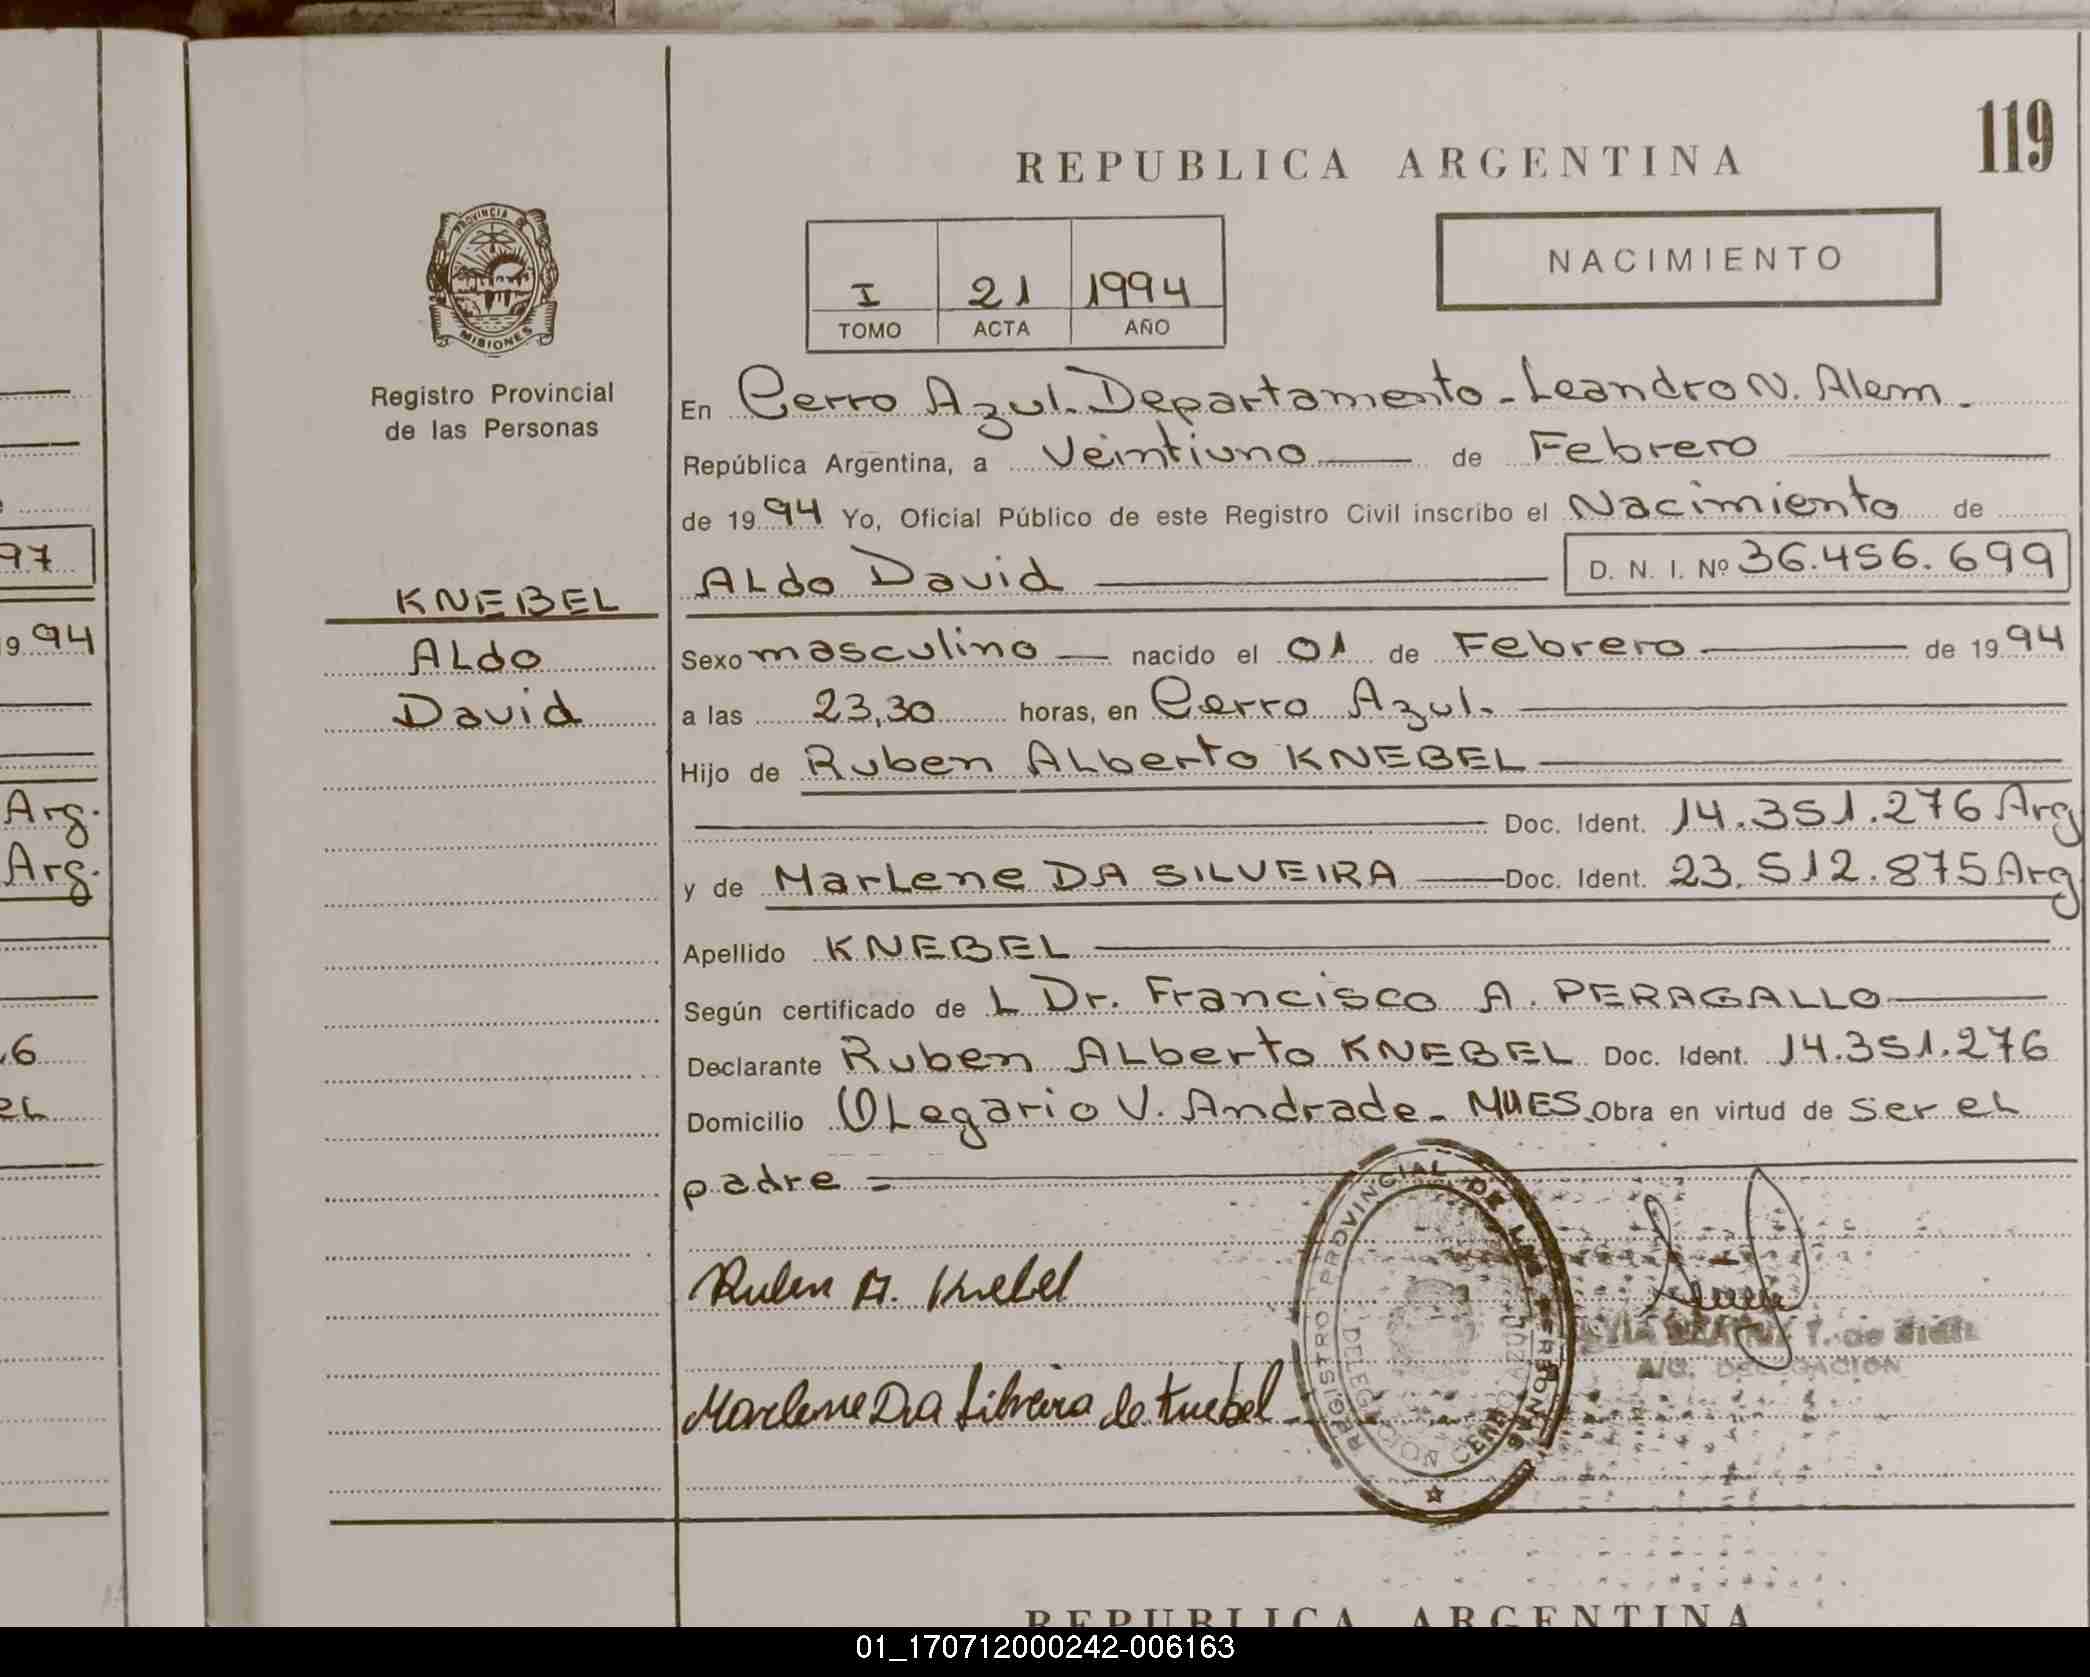 97
9 94
Arg.
Arg.
119
REPUBLICA ARGENTINA
PROVINCIA D
MISIONES
Registro Provincial
de las Personas
I 21 1994
TOMO ACTA AÑO
NACIMIENTO
En Cerro Azul. Departamento - Leandro N. Alem.
República Argentina, a Veintiuno de Febrero
de 1994 Yo, Oficial Público de este Registro Civil inscribo el Nacimiento de
Aldo David D. N. I. Nº 36.456.699
KNEBEL
Aldo
David
Sexo masculino nacido el 01 de Febrero de 1994
a las 23,30 horas, en Cerro Azul.
Hijo de Ruben Alberto KNEBEL
Doc. Ident. 14.351.276 Arg
y de Marlene DA SILVEIRA Doc. Ident. 23.512.875 Arg
Apellido KNEBEL
Según certificado de L Dr. Francisco A. PERAGALLO
Declarante Ruben Alberto KNEBEL Doc. Ident. 14.351.276
Domicilio Olegario V. Andrade - MNES. Obra en virtud de ser el
padre =
Ruben A. Knebel
Marlene Da Silveira de Knebel
REGISTRO PROVINCIAL DE LAS PERSONAS
DELEGACION CERRO AZUL
A/C. DELEGACION
REPUBLICA ARGENTINA
01_170712000242-006163